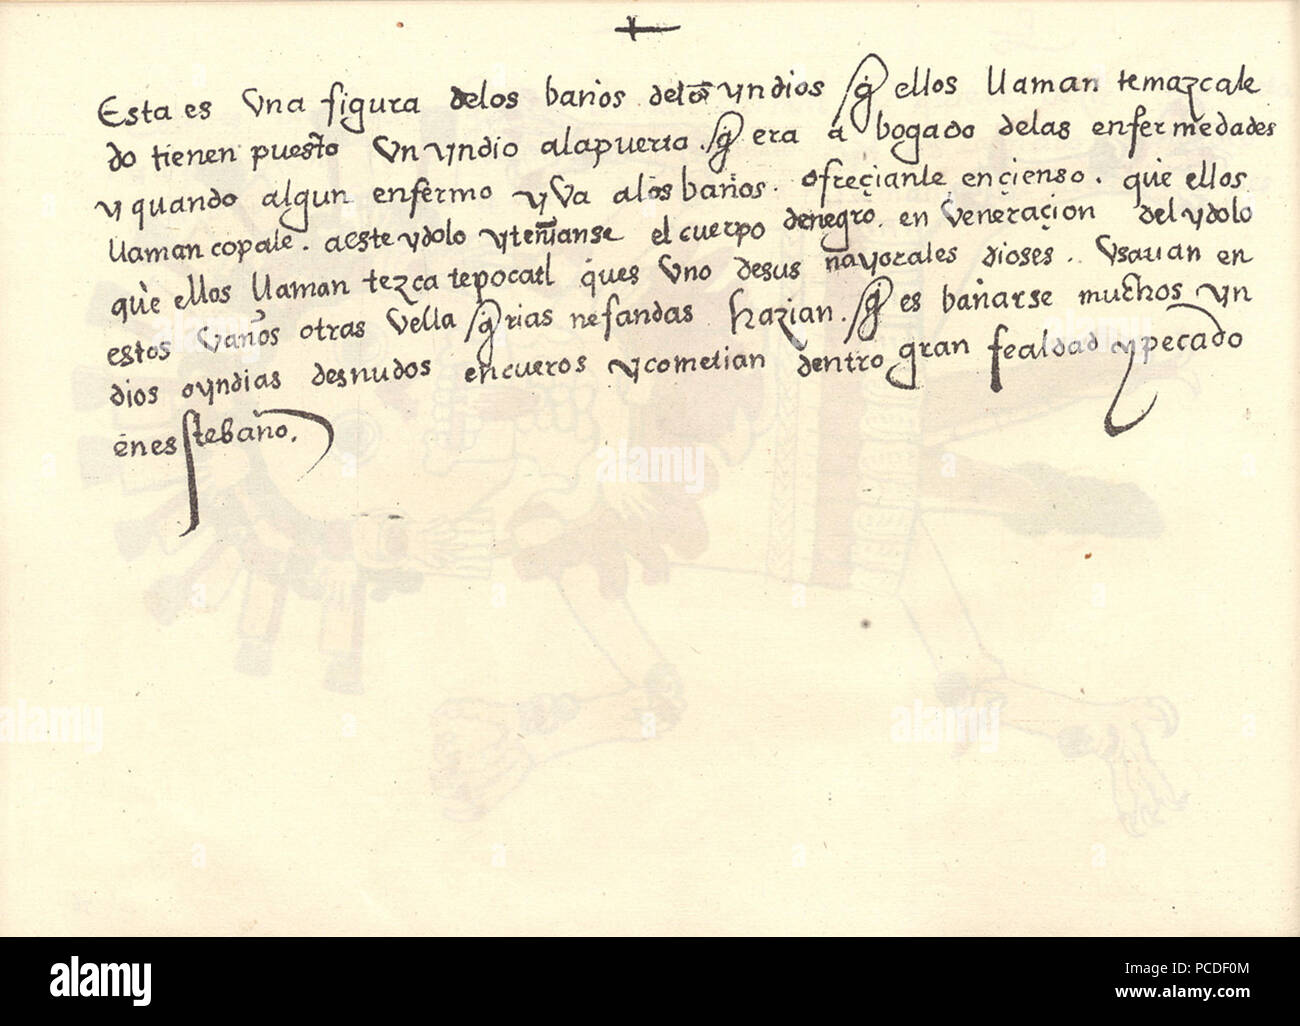 Esta es vna figura delos baños delos yndios q̃ ellos llaman temazcale
do tienen puesto vn yndio alapuerta . q̃ era abogado delas enfermedades
y quando algun enfermo yva alos baños . ofreçianle ençienso . que ellos
llaman copale . a este ydolo y teñianse el cuerpo de negro . en veneraçion del ydolo
que ellos llaman tezcatepocatl ques vno desus mayorales dioses . vsavan en
estos vaños otras vellaq̃rias nefandas hazian . q̃ es bañarse muchos yn
dios o yndias desnudos encueros y cometian dentro gran fealdad y pecado
en este baño .
alamy
PCDF0M
www.alamy.com